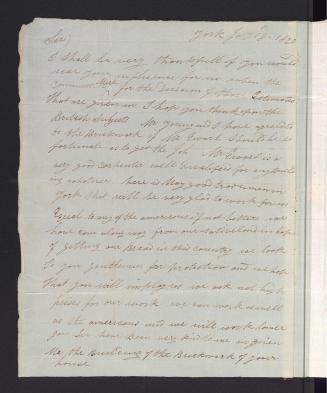 Sir
York Jany 18. 1820
I shall be very thankfull if you would
use your influence for us when the
Committee Meet for the Decision of the Estimates
That are given in I hope you think upon the
British Subjects Mr young and I have agread to
to the Brickwork of Mr Ewart Should he be so
fortunate is to get the Job Mr Ewart is a
very good carpenter well Qualified for any build
ing whatever here is Many good tradesmen in
York that will be very glad to work for us
Equal to any of the americans if not better we
have com along way from our native land in hope
of getting our Bread in this country we look
to you gentlemen for protection and we hope
That you will imploy us we ask not high
prises for our work we can work as well
as the americans and we will work lower
you Sir have Been very kind to us in given
Me the Business of the Brickwork of your
house